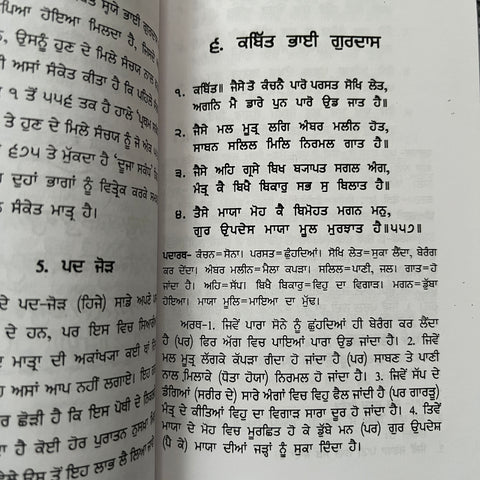 ਸੁਯੇ ਭਾਈ
ਪਿਆ ਹੋਇਆ ਮਿਲਦਾ ਹੈ,
ਉਸਨੂੰ ਹੁਣ ਦੇ ਮਿਲੇ ਸੰਚਯ ਨਾਲ
ਅਸਾਂ ਸੰਕੇਤ ਕੀਤਾ ਹੈ ਕਿ ਪਹਿਲੇ
੧ ਤੋਂ ੫੫੬ ਤਕ ਹੈ ਹਾਲੇ 'ਪ੍ਰਥਮ
ਤੇ ਹੁਣ ਦੇ ਮਿਲੇ ਸੰਚਯ ਨੂੰ ਜੋ ਅੰਕ
੬੭੫ ਤੇ ਮੁੱਕਦਾ ਹੈ 'ਦੂਜਾ ਸਕੰਧ'
ਦੁਹਾਂ ਭਾਗਾਂ ਨੂੰ ਵਿਤ੍ਰੇਕ ਕਰਕੇ ਸਮਝ
ਸੰਕੇਤ ਮਾਤ੍ਰ ਹੈ।
5. ਪਦ ਜੋੜ
ਦੇ ਪਦ-ਜੋੜ (ਹਿਜੇ) ਸਾਡੇ ਅਪਣੇ
ਦੇ ਹਨ, ਪਰ ਇਸ ਵਿਚ ਸਿਆਰੀ
ਮਾਤ੍ਰਾ ਦੀ ਅਕਾਂਖਯਾ ਕਈ ਥਾਂ
ਅਸਾਂ ਆਪ ਨਹੀਂ ਲਗਾਏ। ਇਹ
ਛੋੜੀ ਹੈ ਕਿ ਇਸ ਪੋਥੀ ਦੇ
ਹੈ ਕੋਈ ਹੋਰ ਪੁਰਾਤਨ ਨੁਸਖਾ
ਉਸ ਤੋਂ ਇਹ ਲਾਭ ਲੈ ਲਿਆ ਜਾਵੇ
੬. ਕਬਿੱਤ ਭਾਈ ਗੁਰਦਾਸ
੧. ਕਬਿੱਤ॥ ਜੈਸੇ ਤੋਂ ਕੰਚਨੈ ਪਾਰੋ ਪਰਸਤ ਸੋਖਿ ਲੇਤ,
ਅਗਨਿ ਮੈ ਡਾਰੇ ਪੁਨ ਪਾਰੋ ਉਡ ਜਾਤ ਹੈ॥
੨. ਜੈਸੇ ਮਲ ਮੂਤ੍ਰ ਲਗਿ ਅੰਬਰ ਮਲੀਨ ਹੋਤ,
ਸਾਬਨ ਸਲਿਲ ਮਿਲਿ ਨਿਰਮਲ ਗਾਤ ਹੈ॥
੩. ਜੈਸੇ ਅਹਿ ਗ੍ਰਸੇ ਬਿਖ ਬ੍ਯਾਪਤ ਸਗਲ ਅੰਗ,
ਮੰਤ੍ਰ ਕੈ ਬਿਖੈ ਬਿਕਾਰੁ ਸਭ ਸੁ ਬਿਲਾਤ ਹੈ॥
੪. ਤੈਸੇ ਮਾਯਾ ਮੋਹ ਕੈ ਬਿਮੋਹਤ ਮਗਨ ਮਨੁ,
ਗੁਰ ਉਪਦੇਸ ਮਾਯਾ ਮੂਲ ਮੁਰਝਾਤ ਹੈ॥੫੫੭॥
ਪਦਾਰਥ- ਕੰਚਨ=ਸੋਨਾ। ਪਰਸਤ=ਛੁੰਹਦਿਆਂ। ਸੋਖਿ ਲੇਤ=ਸੁਕਾ ਲੈਂਦਾ, ਬੇਰੰਗ
ਕਰ ਦੇਂਦਾ। ਅੰਬਰ ਮਲੀਨ=ਮੈਲਾ ਕਪੜਾ। ਸਲਿਲ=ਪਾਣੀ, ਜਲ। ਗਾਤ=ਹੋ
ਜਾਂਦਾ ਹੈ। ਅਹਿ=ਸੱਪ। ਬਿਖੈ ਬਿਕਾਰੁ=ਵਿਹੁ ਦਾ ਵਿਗਾੜ। ਮਗਨ=ਡੁੱਬਾ
ਹੋਇਆ। ਮਾਯਾ ਮੂਲਿ=ਮਾਇਆ ਦਾ ਮੁੱਢ।
ਅਰਥ-1. ਜਿਵੇਂ ਪਾਰਾ ਸੋਨੇ ਨੂੰ ਛੁੰਹਦਿਆਂ ਹੀ ਬੇਰੰਗ ਕਰ ਲੈਂਦਾ
ਹੈ (ਪਰ) ਫਿਰ ਅੱਗ ਵਿਚ ਪਾਇਆਂ ਪਾਰਾ ਉਡ ਜਾਂਦਾ ਹੈ। 2. ਜਿਵੇਂ
ਮਲ ਮੂਤ੍ਰ ਲੱਗਕੇ ਕੱਪੜਾ ਗੰਦਾ ਹੋ ਜਾਂਦਾ ਹੈ (ਪਰ) ਸਾਬਣ ਤੇ ਪਾਣੀ
ਨਾਲ ਮਿਲਾਕੇ (ਧੋਤਾ ਹੋਯਾ) ਨਿਰਮਲ ਹੋ ਜਾਂਦਾ ਹੈ। 3. ਜਿਵੇਂ ਸੱਪ ਦੇ
ਡੰਗਿਆਂ (ਸਰੀਰ ਦੇ) ਸਾਰੇ ਅੰਗਾਂ ਵਿਚ ਵਿਹੁ ਫੈਲ ਜਾਂਦੀ ਹੈ (ਪਰ ਗਾਰੜੂ)
ਮੰਤ੍ਰ ਦੇ ਕੀਤਿਆਂ ਵਿਹੁ ਦਾ ਵਿਗਾੜ ਸਾਰਾ ਦੂਰ ਹੋ ਜਾਂਦਾ ਹੈ। 4. ਤਿਵੇਂ
ਮਾਯਾ ਦੇ ਮੋਹ ਵਿਚ ਮੂਰਛਿਤ ਹੋ ਕੇ ਡੁੱਬੇ ਮਨ (ਪਰ) ਗੁਰ ਉਪਦੇਸ਼
(ਪੈ ਕੇ) ਮਾਯਾ ਦੀਆਂ ਜੜ੍ਹਾਂ ਨੂੰ ਸੁਕਾ ਦਿੰਦਾ ਹੈ।